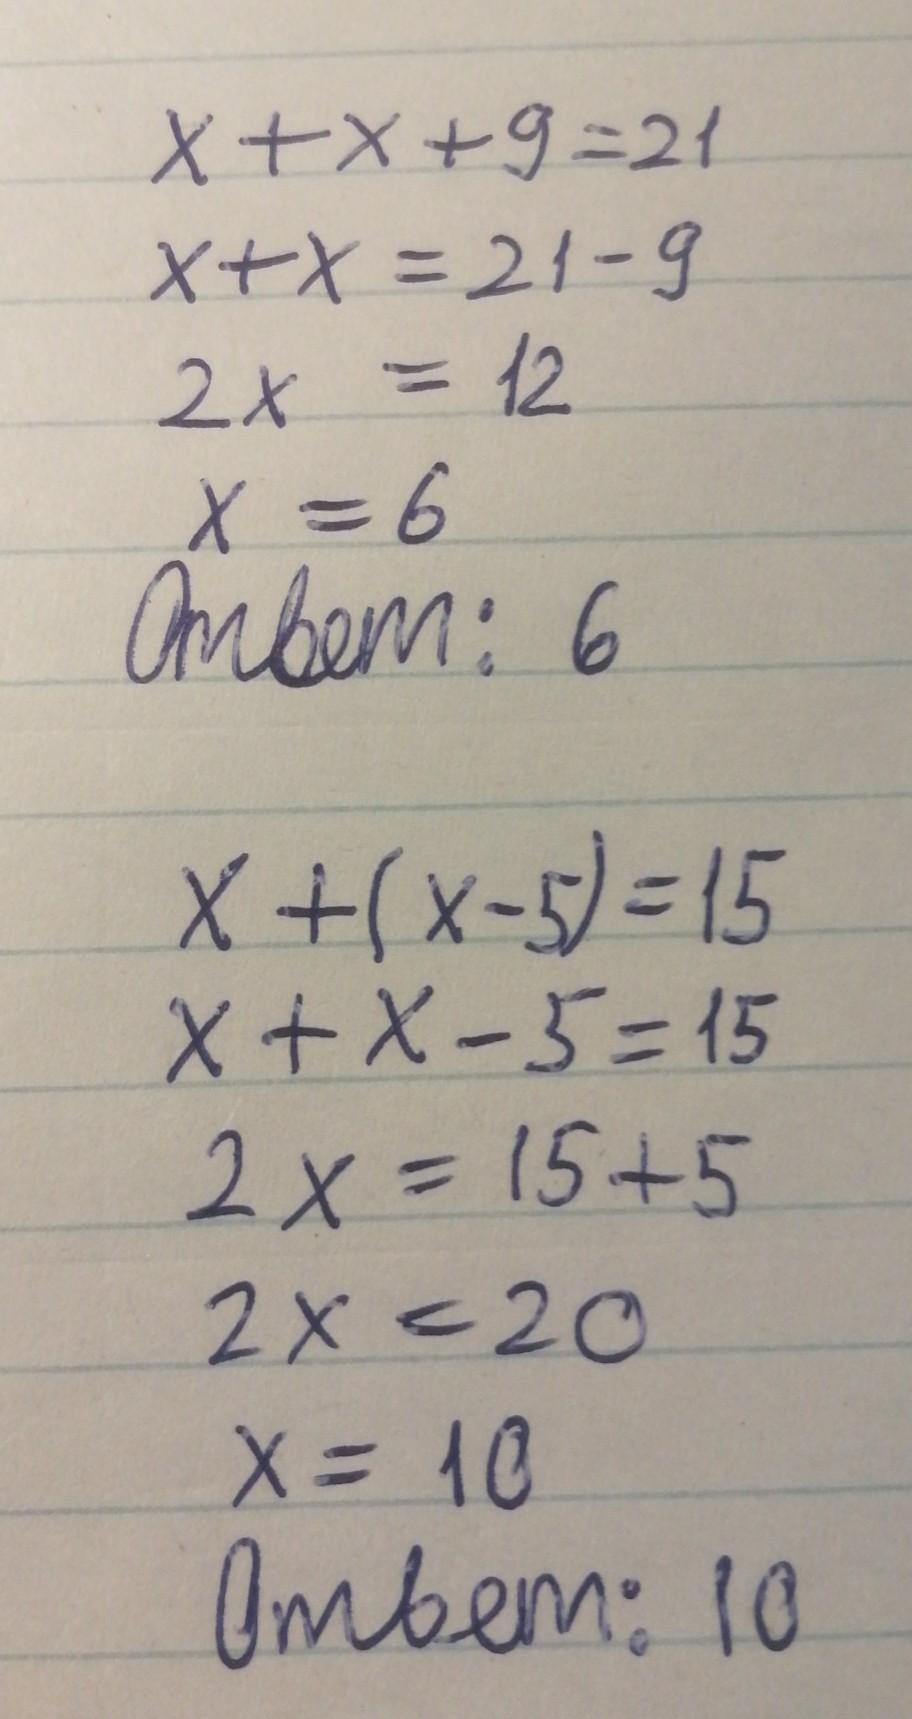 x + x + 9 = 21
x + x = 21 - 9
2x = 12
x = 6
Ответ: 6
x + (x - 5) = 15
x + x - 5 = 15
2x = 15 + 5
2x = 20
x = 10
Ответ: 10